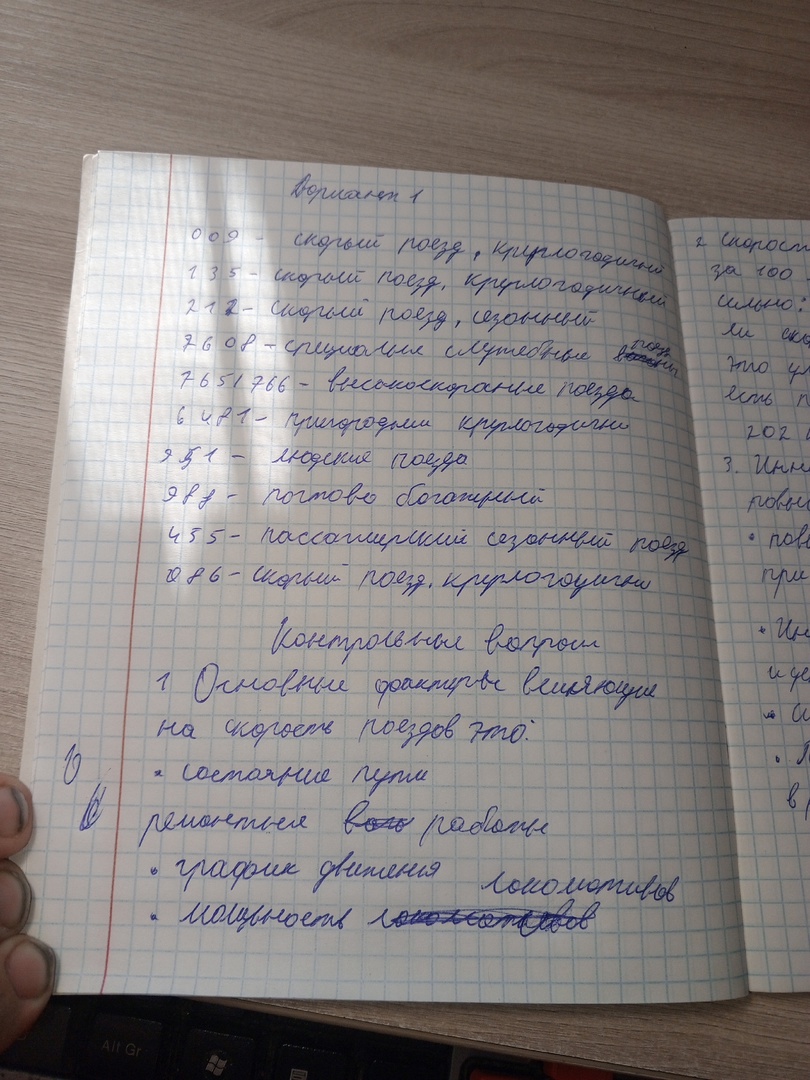 Вариант 1
009 - скорый поезд, круглогодичный
135 - скорый поезд, круглогодичный
212 - скорый поезд, сезонный
7608 - специальные служебные поезда
7651766 - высокоскорстные поезда
6481 - пригородные круглогодичный
951 - людские поезда
988 - почтово богажный
455 - пассажирский сезонный поезд
086 - скорый поезд, круглогодичный
Контрольные вопросы
1 Основные факторы влияющие
на скорость поездов это:
• состояние пути
ремонтные работы
• график движения
• мощность локомотивов
2 Скорост
за 100
сильно:
ли ско
это ул
есть п
202
3. Инн
повы
• пов
при
• Ин
и де
в р
Alt Gr